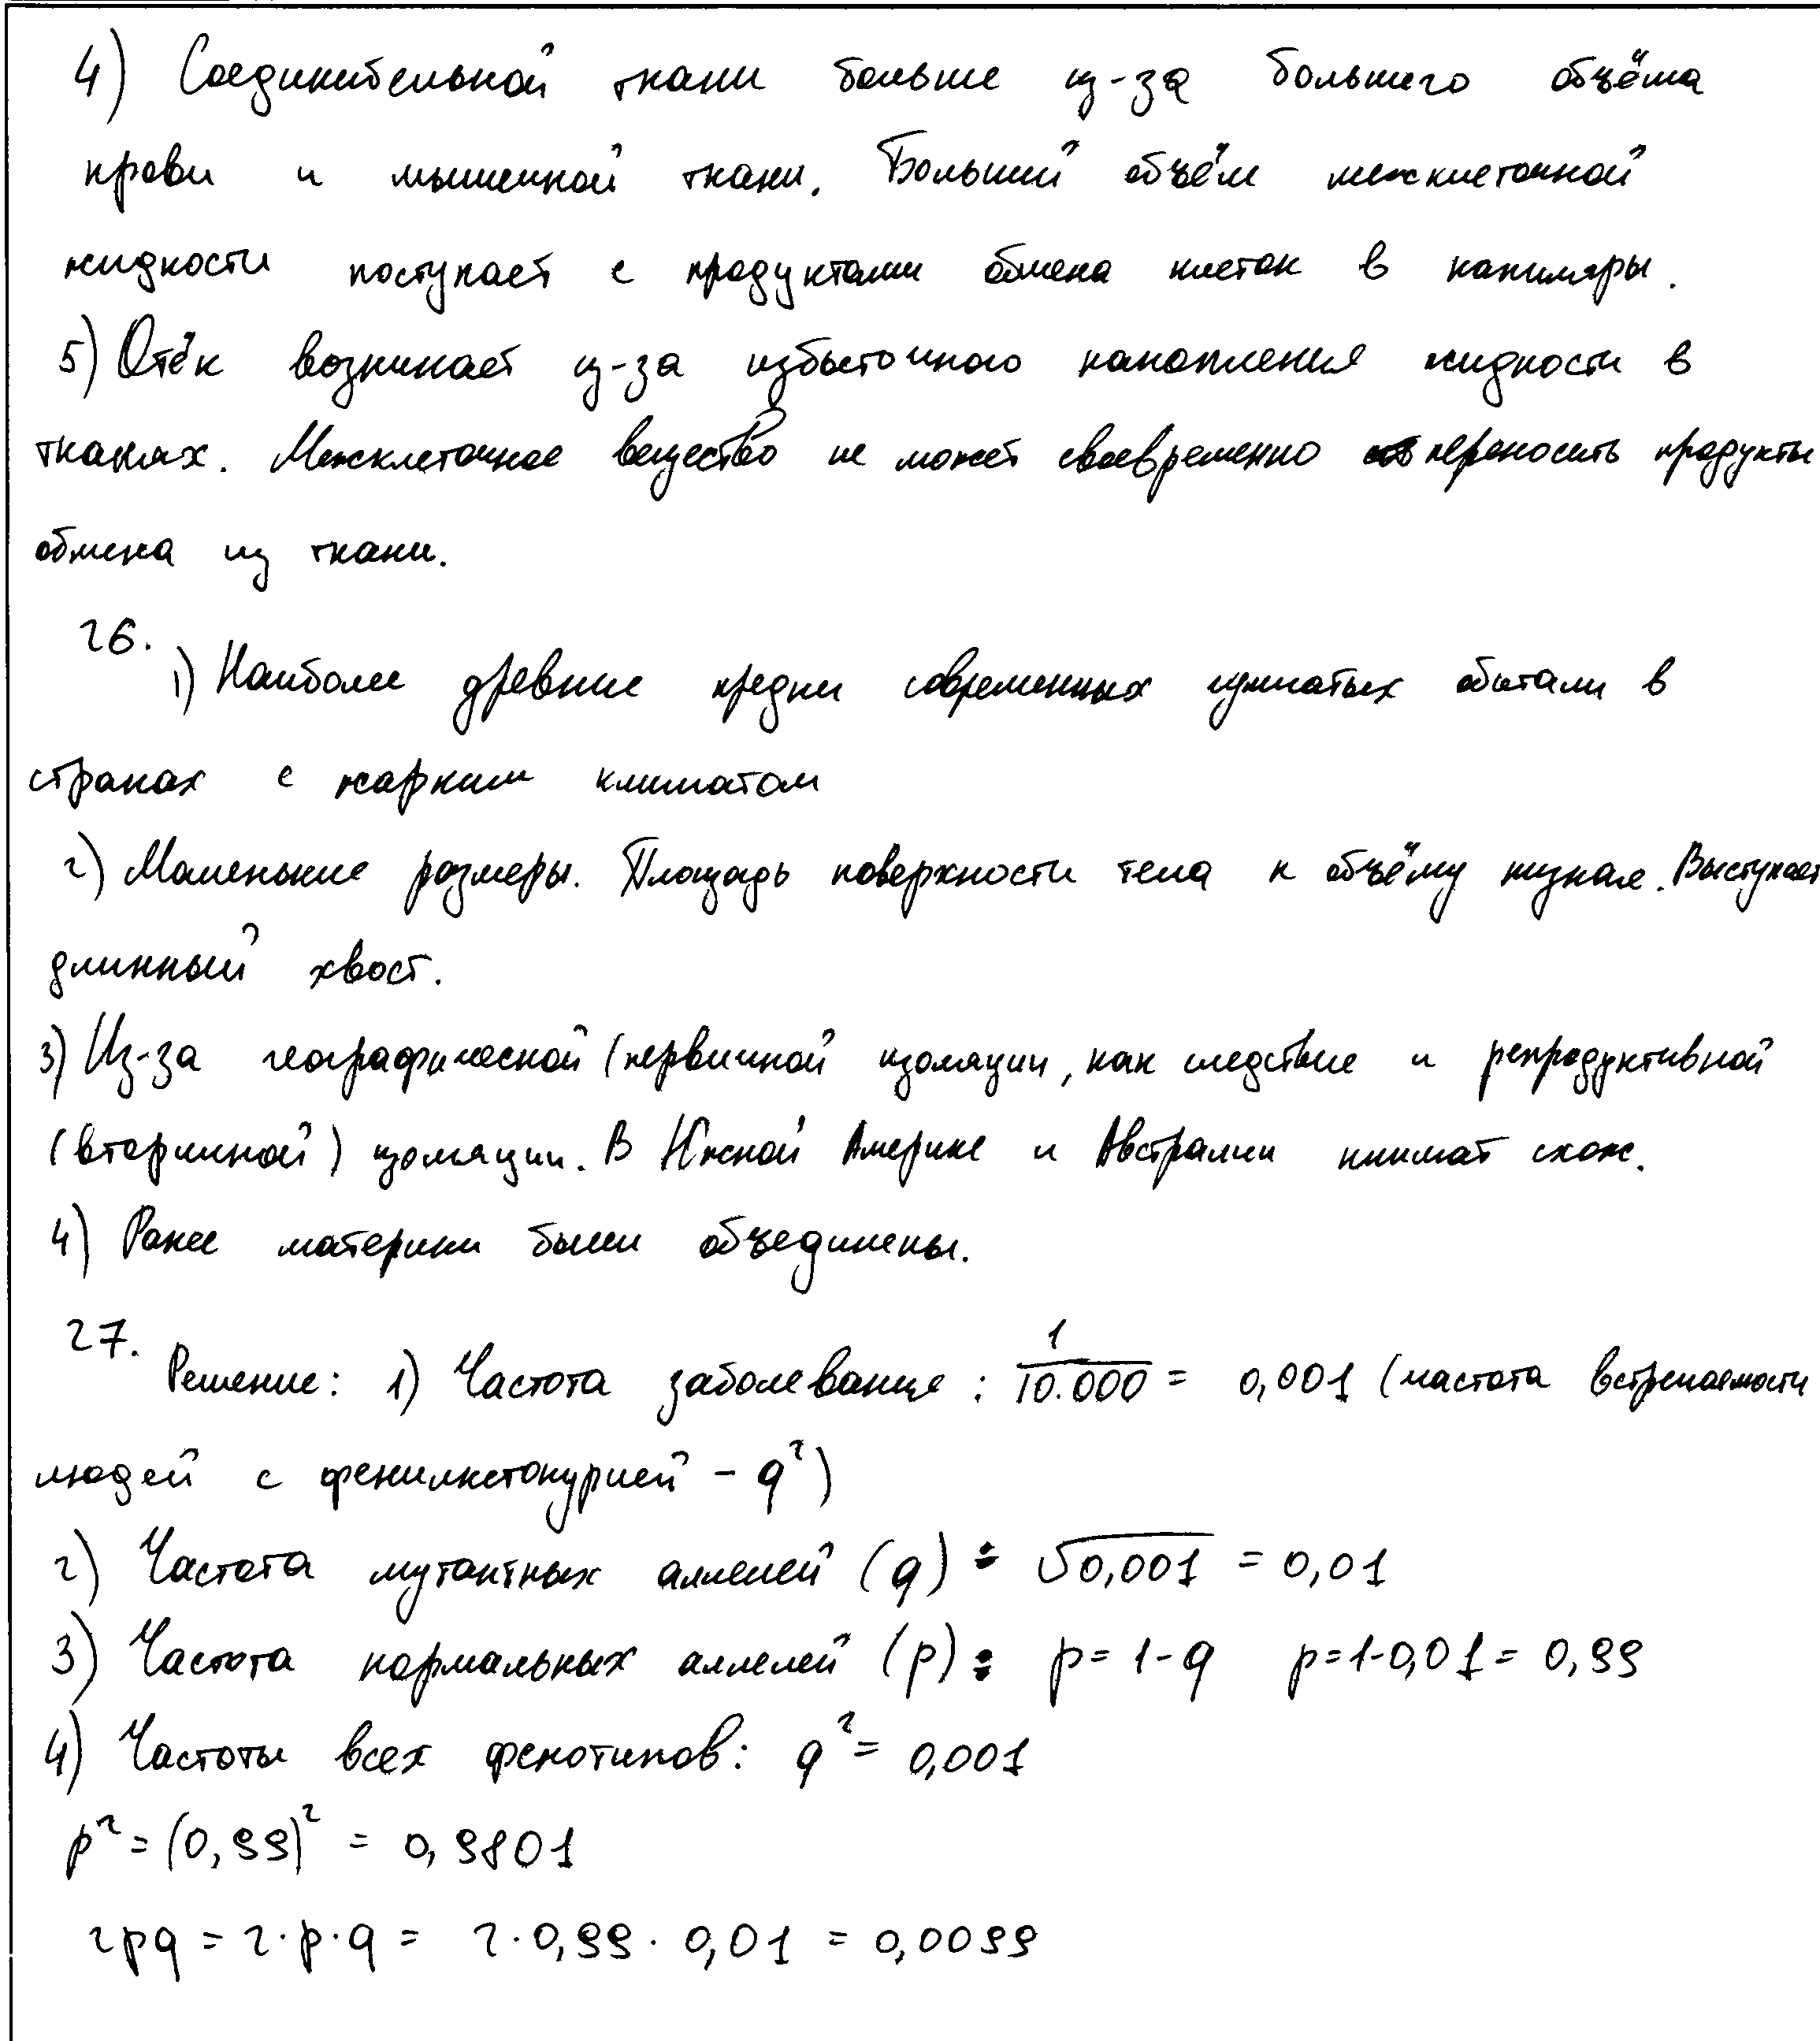 4) Соединительной ткани больше из-за большего объёма
крови и мышечной ткани. Больший объём межклеточной
жидкости поступает с продуктами обмена клеток в капилляры.
5) Отёк возникает из-за избыточного накопления жидкости в
тканях. Межклеточное вещество не может своевременно переносить продукты
обмена из ткани.
26.
1) Наиболее древние предки современных сумчатых обитали в
странах с жарким климатом
2) Маленькие размеры. Площадь поверхности тела к объёму низкая. Выступает
длинный хвост.
3) Из-за географической (первичной изоляции, как следствие и репродуктивной
(вторичной) изоляции. В Южной Америке и Австралии климат схож.
4) Ранее материки были объединены.
27.
Решение: 1) Частота заболевание : 1/10.000 = 0,001 (частота встречаемости
людей с фенилкетонурией - q²)
2) Частота мутантных аллелей (q) = √0,001 = 0,01
3) Частота нормальных аллелей (p) = p = 1-q p=1-0,01 = 0,99
4) Частоты всех фенотипов: q² = 0,001
p² = (0,99)² = 0,9801
2pq = 2·p·q = 2·0,99·0,01 = 0,0099